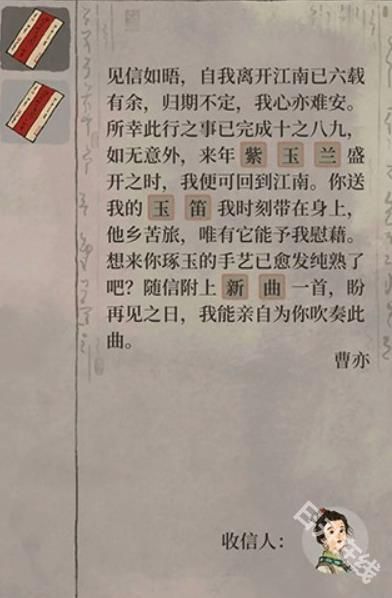 见信如晤，自我离开江南已六载
有余，归期不定，我心亦难安。
所幸此行之事已完成十之八九，
如无意外，来年紫玉兰盛
开之时，我便可回到江南。你送
我的玉笛我时刻带在身上，
他乡苦旅，唯有它能予我慰藉。
想来你琢玉的手艺已愈发纯熟了
吧？随信附上新曲一首，盼
再见之日，我能亲自为你吹奏此
曲。
曹亦
收信人：
在线